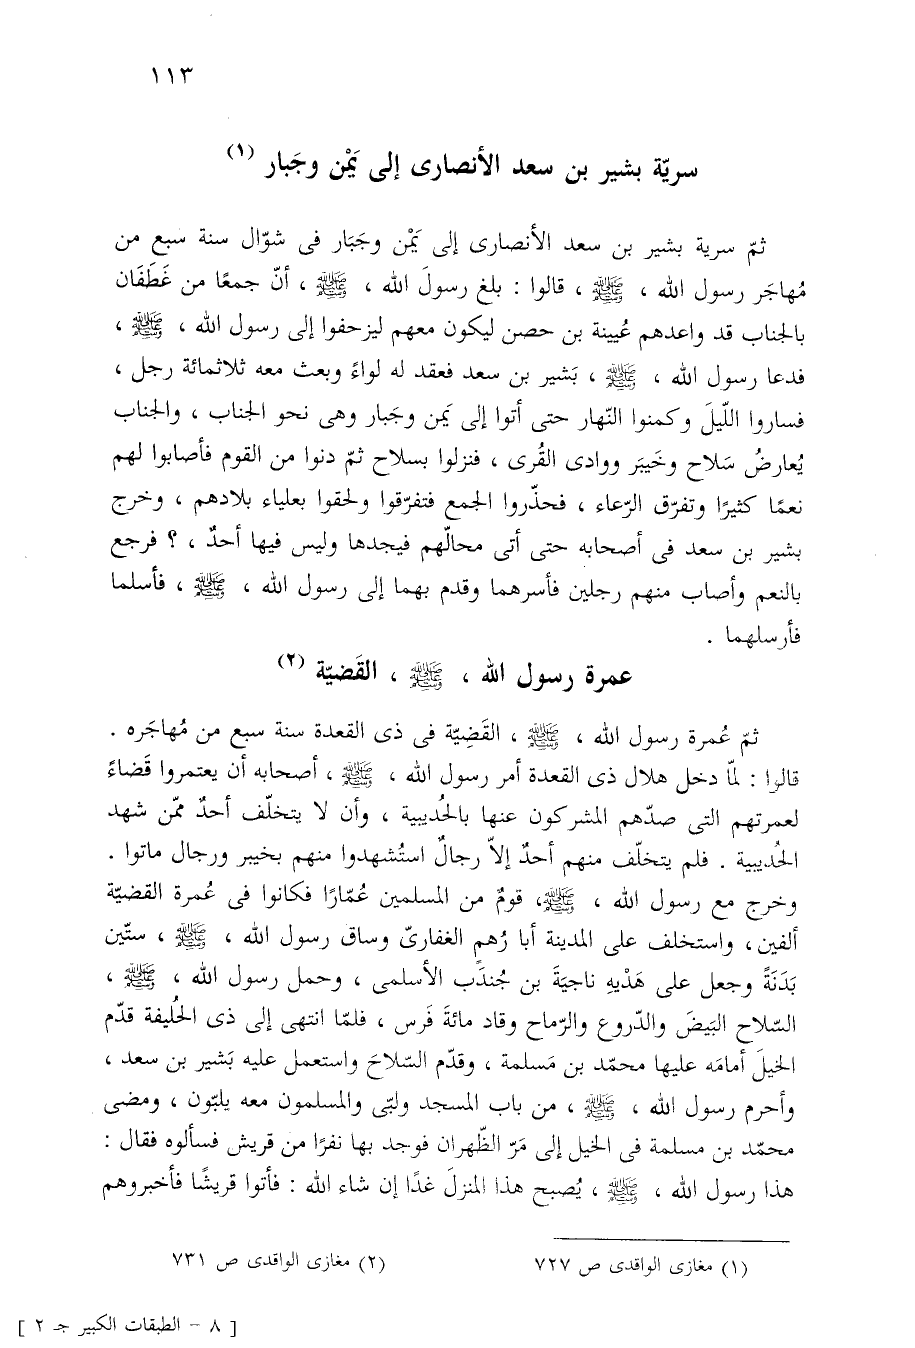 ١١٣
سريّة بشير بن سعد الأنصارى إلى يَمْن وجَبار (١)
ثمّ سرية بشير بن سعد الأنصارى إلى يَمْن وجَبَار فى شوّال سنة سبع من
مُهاجَر رسول الله ، ﷺ ، قالوا : بلغ رسولَ الله ، ﷺ ، أنّ جمعًا من غَطَفَان
بالجناب قد واعدهم عُيينة بن حصن ليكون معهم ليزحفوا إلى رسول الله ، ﷺ ،
فدعا رسول الله ، ﷺ ، بَشير بن سعد فعقد له لواءً وبعث معه ثلاثمائة رجل ،
فساروا اللّيلَ وكمنوا النّهار حتى أتوا إلى يَمن وجَبار وهى نحو الجناب ، والجناب
يُعارضُ سَلاح وخَيبَر ووادى القُرى ، فنزلوا بسلاح ثمّ دنوا من القوم فأصابوا لهم
نعمًا كثيرًا وتفرّق الرّعاء ، فحذّروا الجمع فتفرّقوا ولحقوا بعلياء بلادهم ، وخرج
بشير بن سعد فى أصحابه حتى أتى محالّهم فيجدها وليس فيها أحدٌ ، ؟ فرجع
بالنعم وأصاب منهم رجلين فأسرهما وقدم بهما إلى رسول الله ، ﷺ ، فأسلما
فأرسلهما .
عمرة رسول الله ، ﷺ ، القَضيّة (٢)
ثمّ عُمرة رسول الله ، ﷺ ، القَضِيّة فى ذى القعدة سنة سبع من مُهاجَره .
قالوا : لمّا دخل هلال ذى القعدة أمر رسول الله ، ﷺ ، أصحابه أن يعتمروا قَضاءً
لعمرتهم التى صدّهم المشركون عنها بالحُديبية ، وأن لا يتخلّف أحدٌ ممّن شهد
الحُديبية . فلم يتخلّف منهم أحدٌ إلاّ رجالٌ استُشهدوا منهم بخيبر ورجال ماتوا .
وخرج مع رسول الله ، ﷺ، قومٌ من المسلمين عُمّارًا فكانوا فى عُمرة القضيّة
ألفين، واستخلف على المدينة أبا رُهم الغفارىّ وساق رسول الله ، ﷺ ، ستّين
بَدَنَةً وجعل على هَدْيهِ ناجيَةَ بن جُندَب الأسلمى ، وحمل رسول الله ، ﷺ ،
السّلاح البَيضَ والدّروع والرّماح وقاد مائةَ فَرس ، فلمّا انتهى إلى ذى الحُليفة قدّم
الخيلَ أمامَه عليها محمّد بن مَسلمة ، وقدّم السّلاحَ واستعمل عليه بَشير بن سعد ،
وأحرم رسول الله ، ﷺ ، من باب المسجد ولبّى والمسلمون معه يلبّون ، ومضى
محمّد بن مسلمة فى الخيل إلى مَرّ الظّهران فوجد بها نفرًا من قريش فسألوه فقال :
هذا رسول الله ، ﷺ ، يُصبح هذا المنزلَ غدًا إن شاء الله : فأتوا قريشًا فأخبروهم
(١) مغازى الواقدى ص ٧٢٧
(٢) مغازى الواقدى ص ٧٣١
[ ٨ – الطبقات الكبير جـ ٢ ]